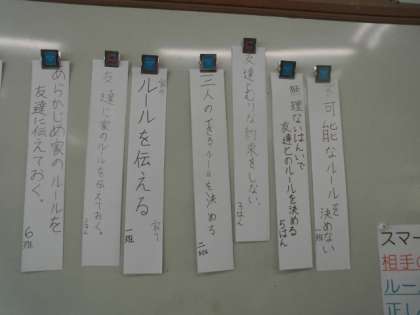 不可能なルールを
決めない
一班
無理ないはんいで
友達とのルールを決める
5はん
友達とむりな約束をしない。
3はん
三人のできるルールを決める
二班
家の
ルールを伝える
一班
友達に家のルールを伝えておく。
あらかじめ家のルールを
友達に伝えておく。
6班
スマー
相手の
ルー
正し